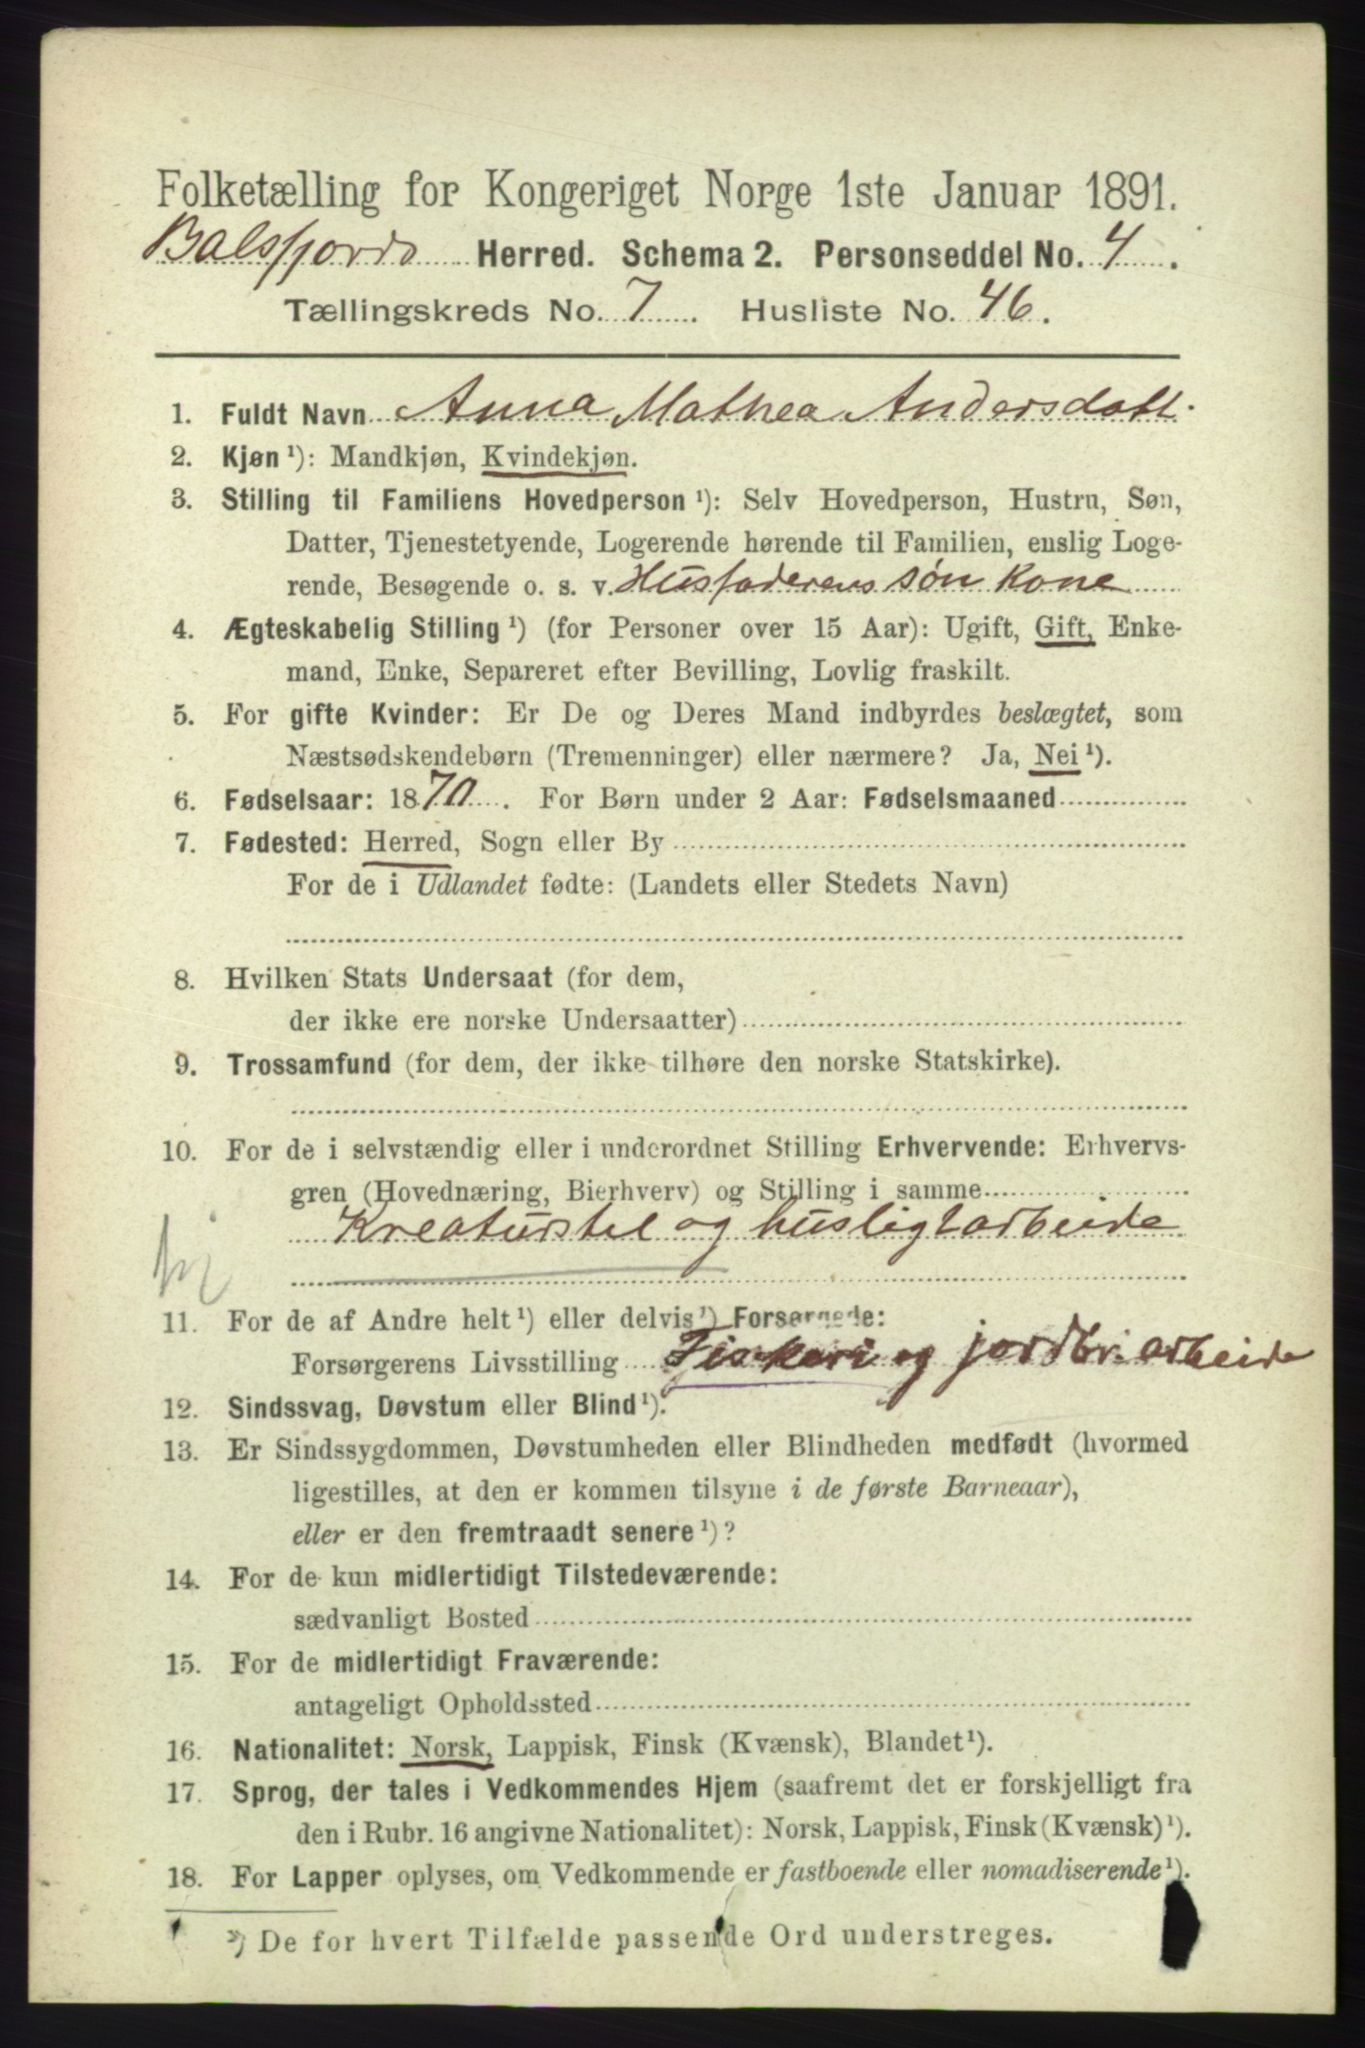 Folketælling for Kongeriget Norge 1ste Januar 1891.
Balsfjords Herred. Schema 2. Personseddel No. 4.
Tællingskreds No. 7. Husliste No. 46.
1. Fuldt Navn Anna Mathea Andersdatt.
2. Kjøn ¹): Mandkjøn, Kvindekjøn.
3. Stilling til Familiens Hovedperson ¹): Selv Hovedperson, Hustru, Søn,
Datter, Tjenestetyende, Logerende hørende til Familien, enslig Loge-
rende, Besøgende o. s. v. Husfaderens søn Kone
4. Ægteskabelig Stilling ¹) (for Personer over 15 Aar): Ugift, Gift, Enke-
mand, Enke, Separeret efter Bevilling, Lovlig fraskilt.
5. For gifte Kvinder: Er De og Deres Mand indbyrdes beslægtet, som
Næstsødskendebørn (Tremenninger) eller nærmere? Ja, Nei ¹).
6. Fødselsaar: 1870. For Børn under 2 Aar: Fødselsmaaned
7. Fødested: Herred, Sogn eller By
For de i Udlandet fødte: (Landets eller Stedets Navn)
8. Hvilken Stats Undersaat (for dem,
der ikke ere norske Undersaatter)
9. Trossamfund (for dem, der ikke tilhøre den norske Statskirke).
10. For de i selvstændig eller i underordnet Stilling Erhvervende: Erhvervs-
gren (Hovednæring, Bierhverv) og Stilling i samme
Kreaturstel og husligtarbeide
11. For de af Andre helt ¹) eller delvis ¹) Forsørgede:
Forsørgerens Livsstilling Fiskeri og jordbr. arbeide
12. Sindssvag, Døvstum eller Blind ¹).
13. Er Sindssygdommen, Døvstumheden eller Blindheden medfødt (hvormed
ligestilles, at den er kommen tilsyne i de første Barneaar),
eller er den fremtraadt senere ¹)?
14. For de kun midlertidigt Tilstedeværende:
sædvanligt Bosted
15. For de midlertidigt Fraværende:
antageligt Opholdssted
16. Nationalitet: Norsk, Lappisk, Finsk (Kvænsk), Blandet ¹).
17. Sprog, der tales i Vedkommendes Hjem (saafremt det er forskjelligt fra
den i Rubr. 16 angivne Nationalitet): Norsk, Lappisk, Finsk (Kvænsk) ¹).
18. For Lapper oplyses, om Vedkommende er fastboende eller nomadiserende ¹).
¹) De for hvert Tilfælde passende Ord understreges.